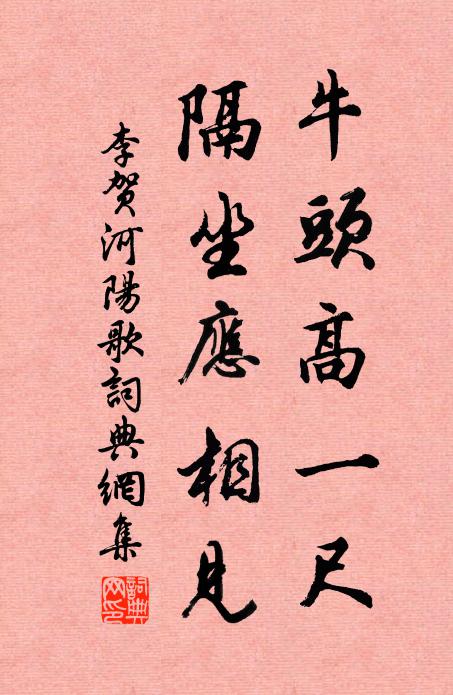 牛頭高一尺
隔坐應相見
李賀河陽歌詞典網集
詞典網印